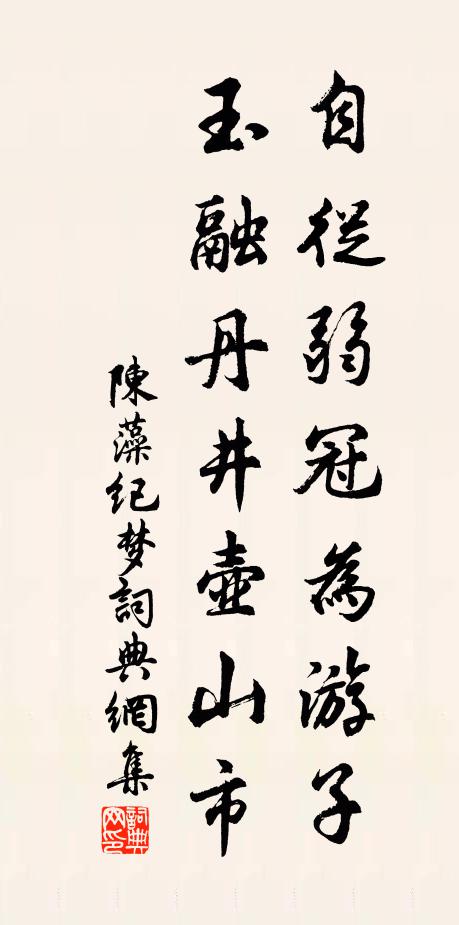 自從弱冠為游子
玉融丹井壺山市
陳藻纪梦詞典網集
詞典网印